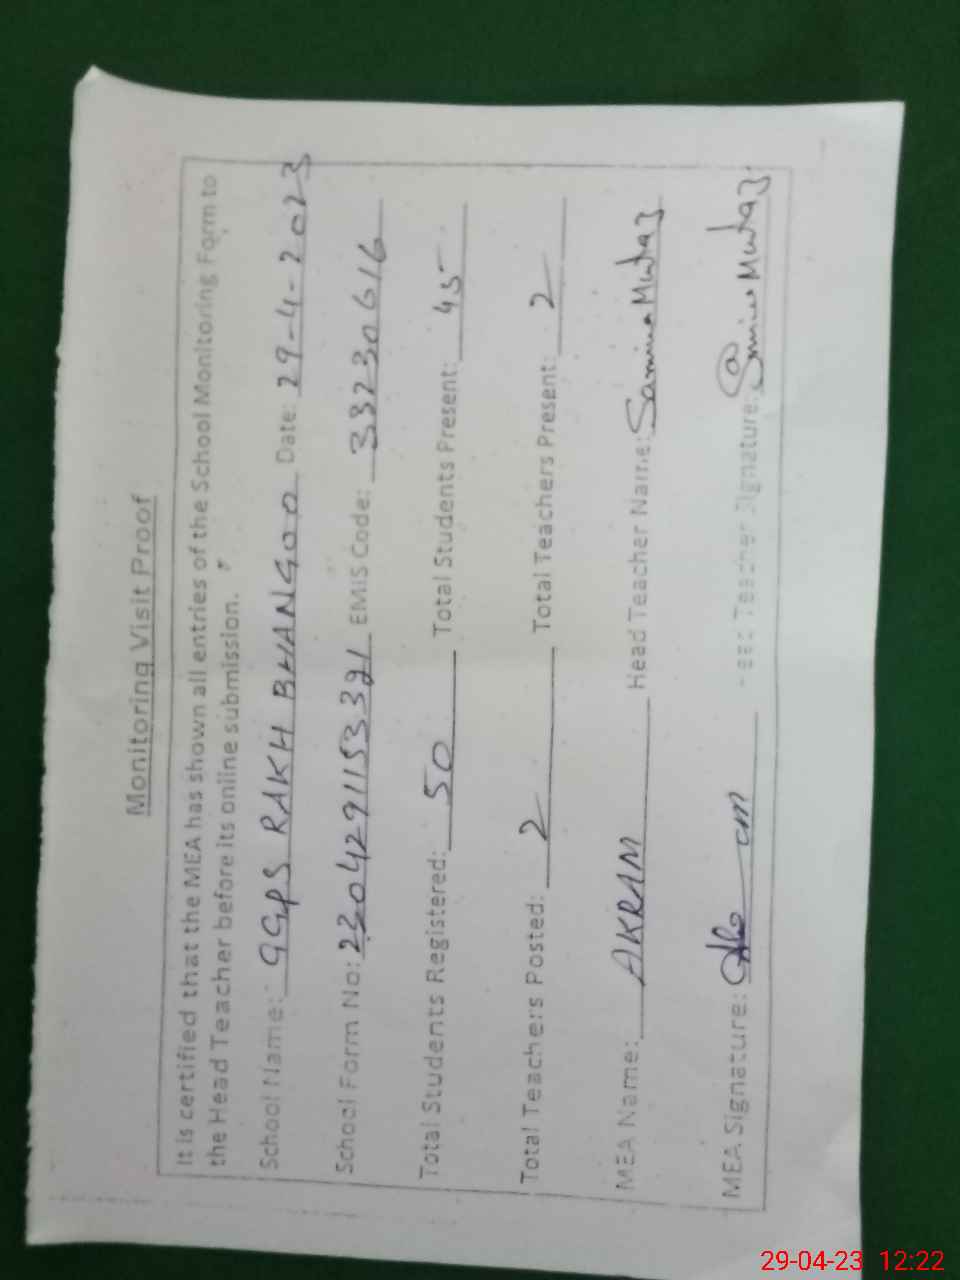 Monitoring Visit Proof
It is certified that the MEA has shown all entries of the School Monitoring Form to
the Head Teacher before its online submission.
School Name: GGPS RAKH BHANGOO Date: 29-4-2023
School Form No: 2304291153321 EMIS Code: 33230616
Total Students Registered: 50 Total Students Present: 45
Total Teachers Posted: 2 Total Teachers Present: 2
MEA Name: AKRAM Head Teacher Name: Samina Mumtaz
MEA Signature: Head Teacher Signature: Samina Mumtaz
29-04-23 12:22